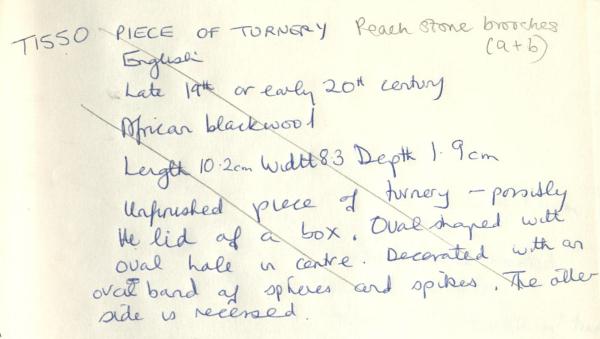 T1550 PIECE OF TURNERY Peach stone brooches
(a+b)
English
Late 19th or early 20th century
African blackwood
Length 10.2cm Width 8.3 Depth 1.9cm
Unfinished piece of turnery – possibly
the lid of a box. Oval shaped with
oval hole in centre. Decorated with an
oval band of spheres and spikes. The other
side is recessed.